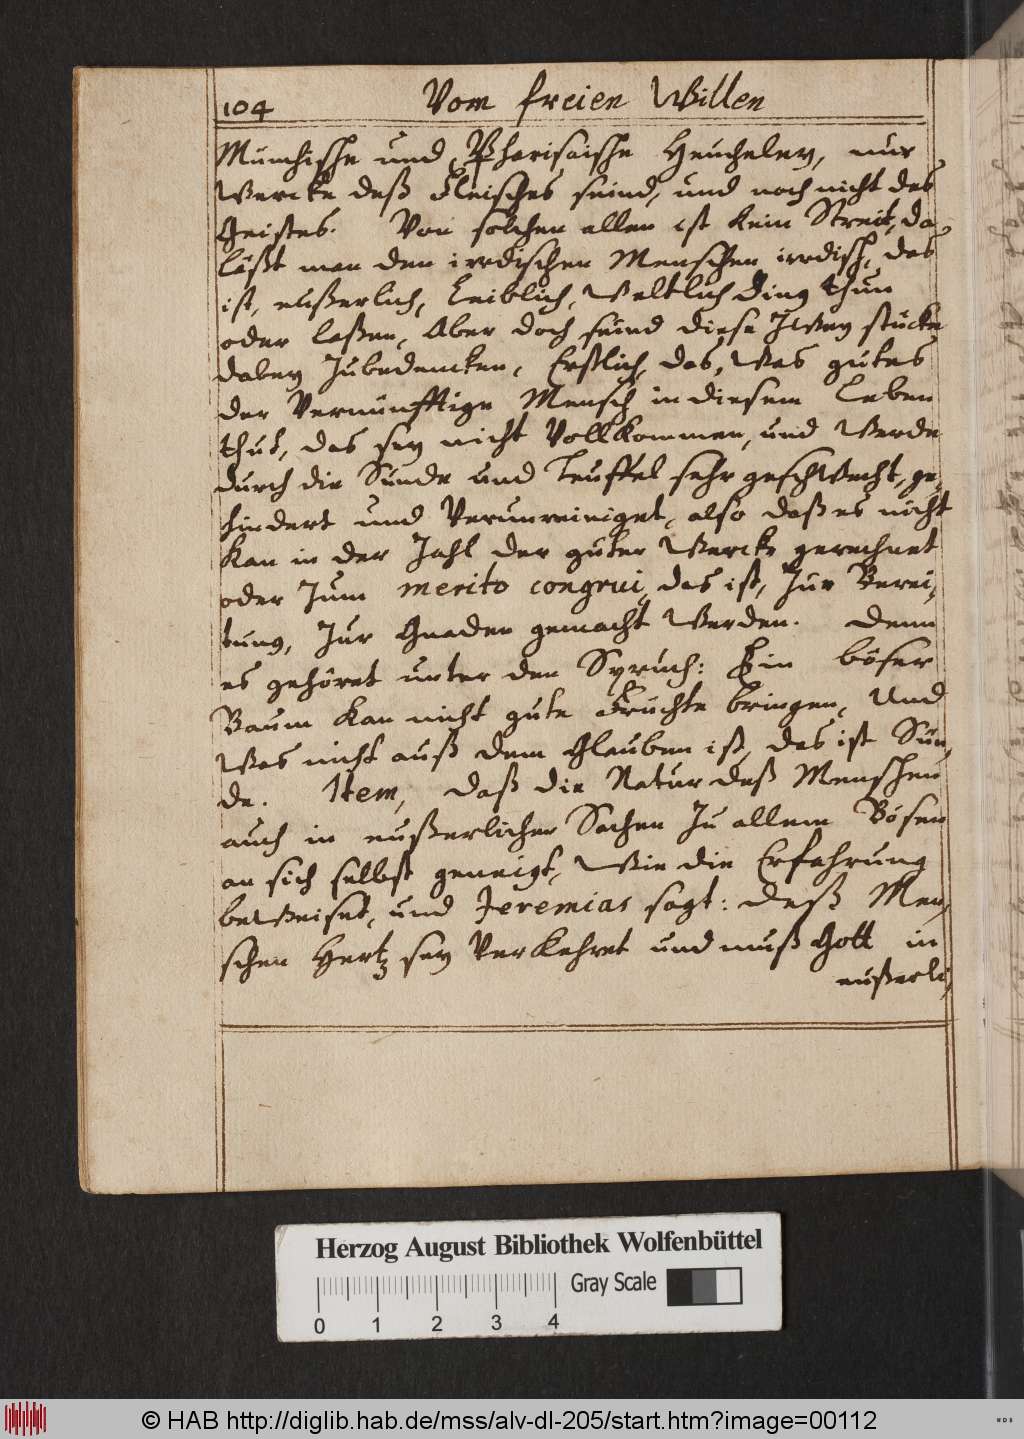 104
Vom freien Willen
Münchische und Pharisaische Heucheley, nur
Wercke deß Fleisches seind, und noch nicht des
Geistes. Von solchen allen ist kein Streit, da
läßt man den irrdischen Menschen irrdisch, das
ist, eußerlich, Leiblich, Weltlich Ding thun
oder laßen, Aber doch seind diese Zwey stücke
dabey Zubedencken, Erstlich, das, Was gutes
der Vernünfftige Mensch in diesem Leben
thut, das sey nicht Vollkommen, und Werde
durch die Sünde und Teuffel sehr geschwecht, ge,
hindert und Verunreiniget, also daß es nicht
kan in der Zahl der guter Wercke gerechnet
oder Zum merito congrui, das ist, Zur Berei,
tung, Zur Gnaden gemacht Werden. Denn
es gehöret unter den Spruch: Ein böser
Baum kan nicht gute Früchte bringen, Und
Was nicht auß dem Glauben ist, das ist Sün,
de. Item, daß die Natur deß Menschen
auch in eußerlichen Sachen Zu allem Bösen
an sich selbst geneigt, Wie die Erfahrung
beweiset, und Jeremias sagt: deß Men,
schen Hertz sey Verkehret und muß Gott in
eußerli,
Herzog August Bibliothek Wolfenbüttel
Gray Scale
0 1 2 3 4
© HAB http://diglib.hab.de/mss/alv-dl-205/start.htm?image=00112